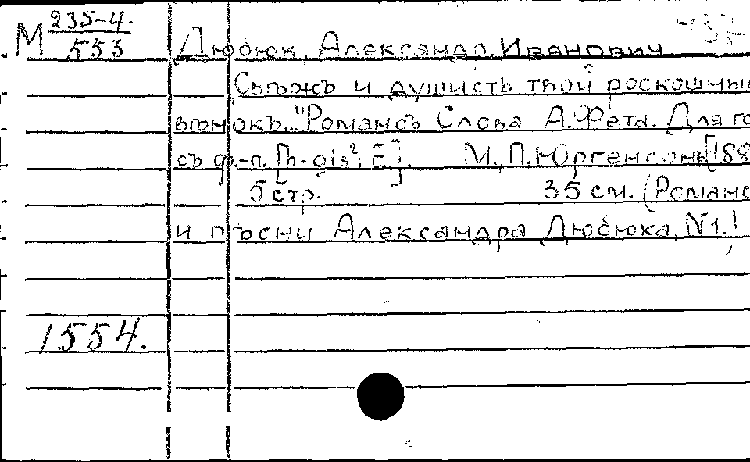 М 235-4.
553
Дюбюк, Александр Иванович
"Свѣжъ и душистъ твой роскошный
вѣнокъ." Романсъ Слова А. Фета. Для го
съ ф.-п. [h-gis², E]. М., П. Юргенсонъ [188
5 стр. 35 см. (Романс
и пѣсни Александра Дюбюка, N1.)
1554.